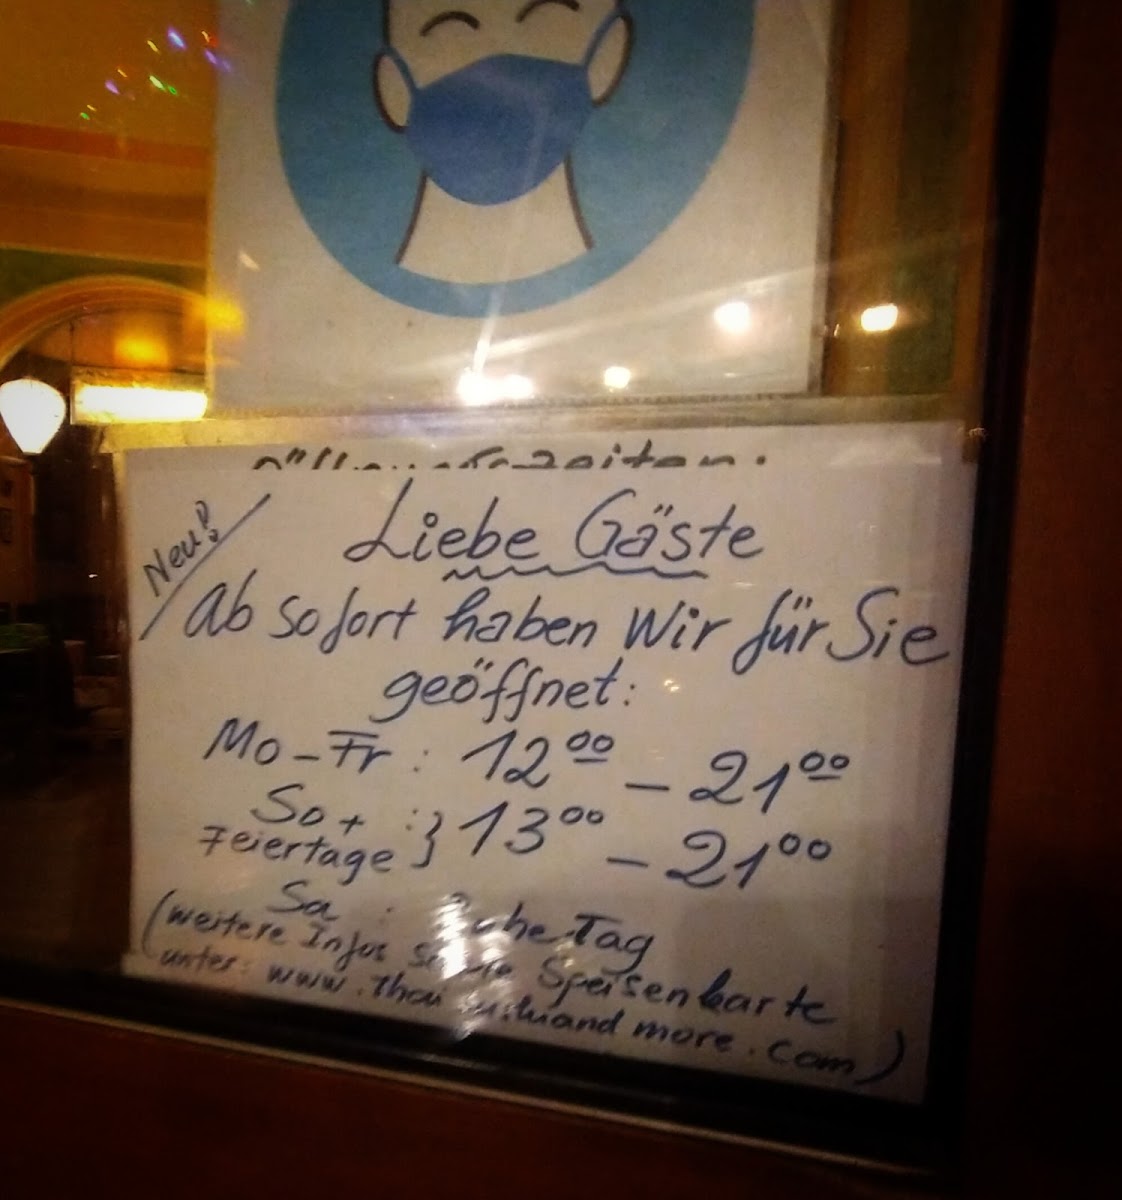 Öffnungszeiten:
Neu!
Liebe Gäste
Ab sofort haben Wir für Sie
geöffnet:
Mo - Fr : 12⁰⁰ - 21⁰⁰
So + Feiertage :} 13⁰⁰ - 21⁰⁰
Sa : RuheTag
(weitere Infos sowie Speisenkarte
unter: www.thaisushiandmore.com)